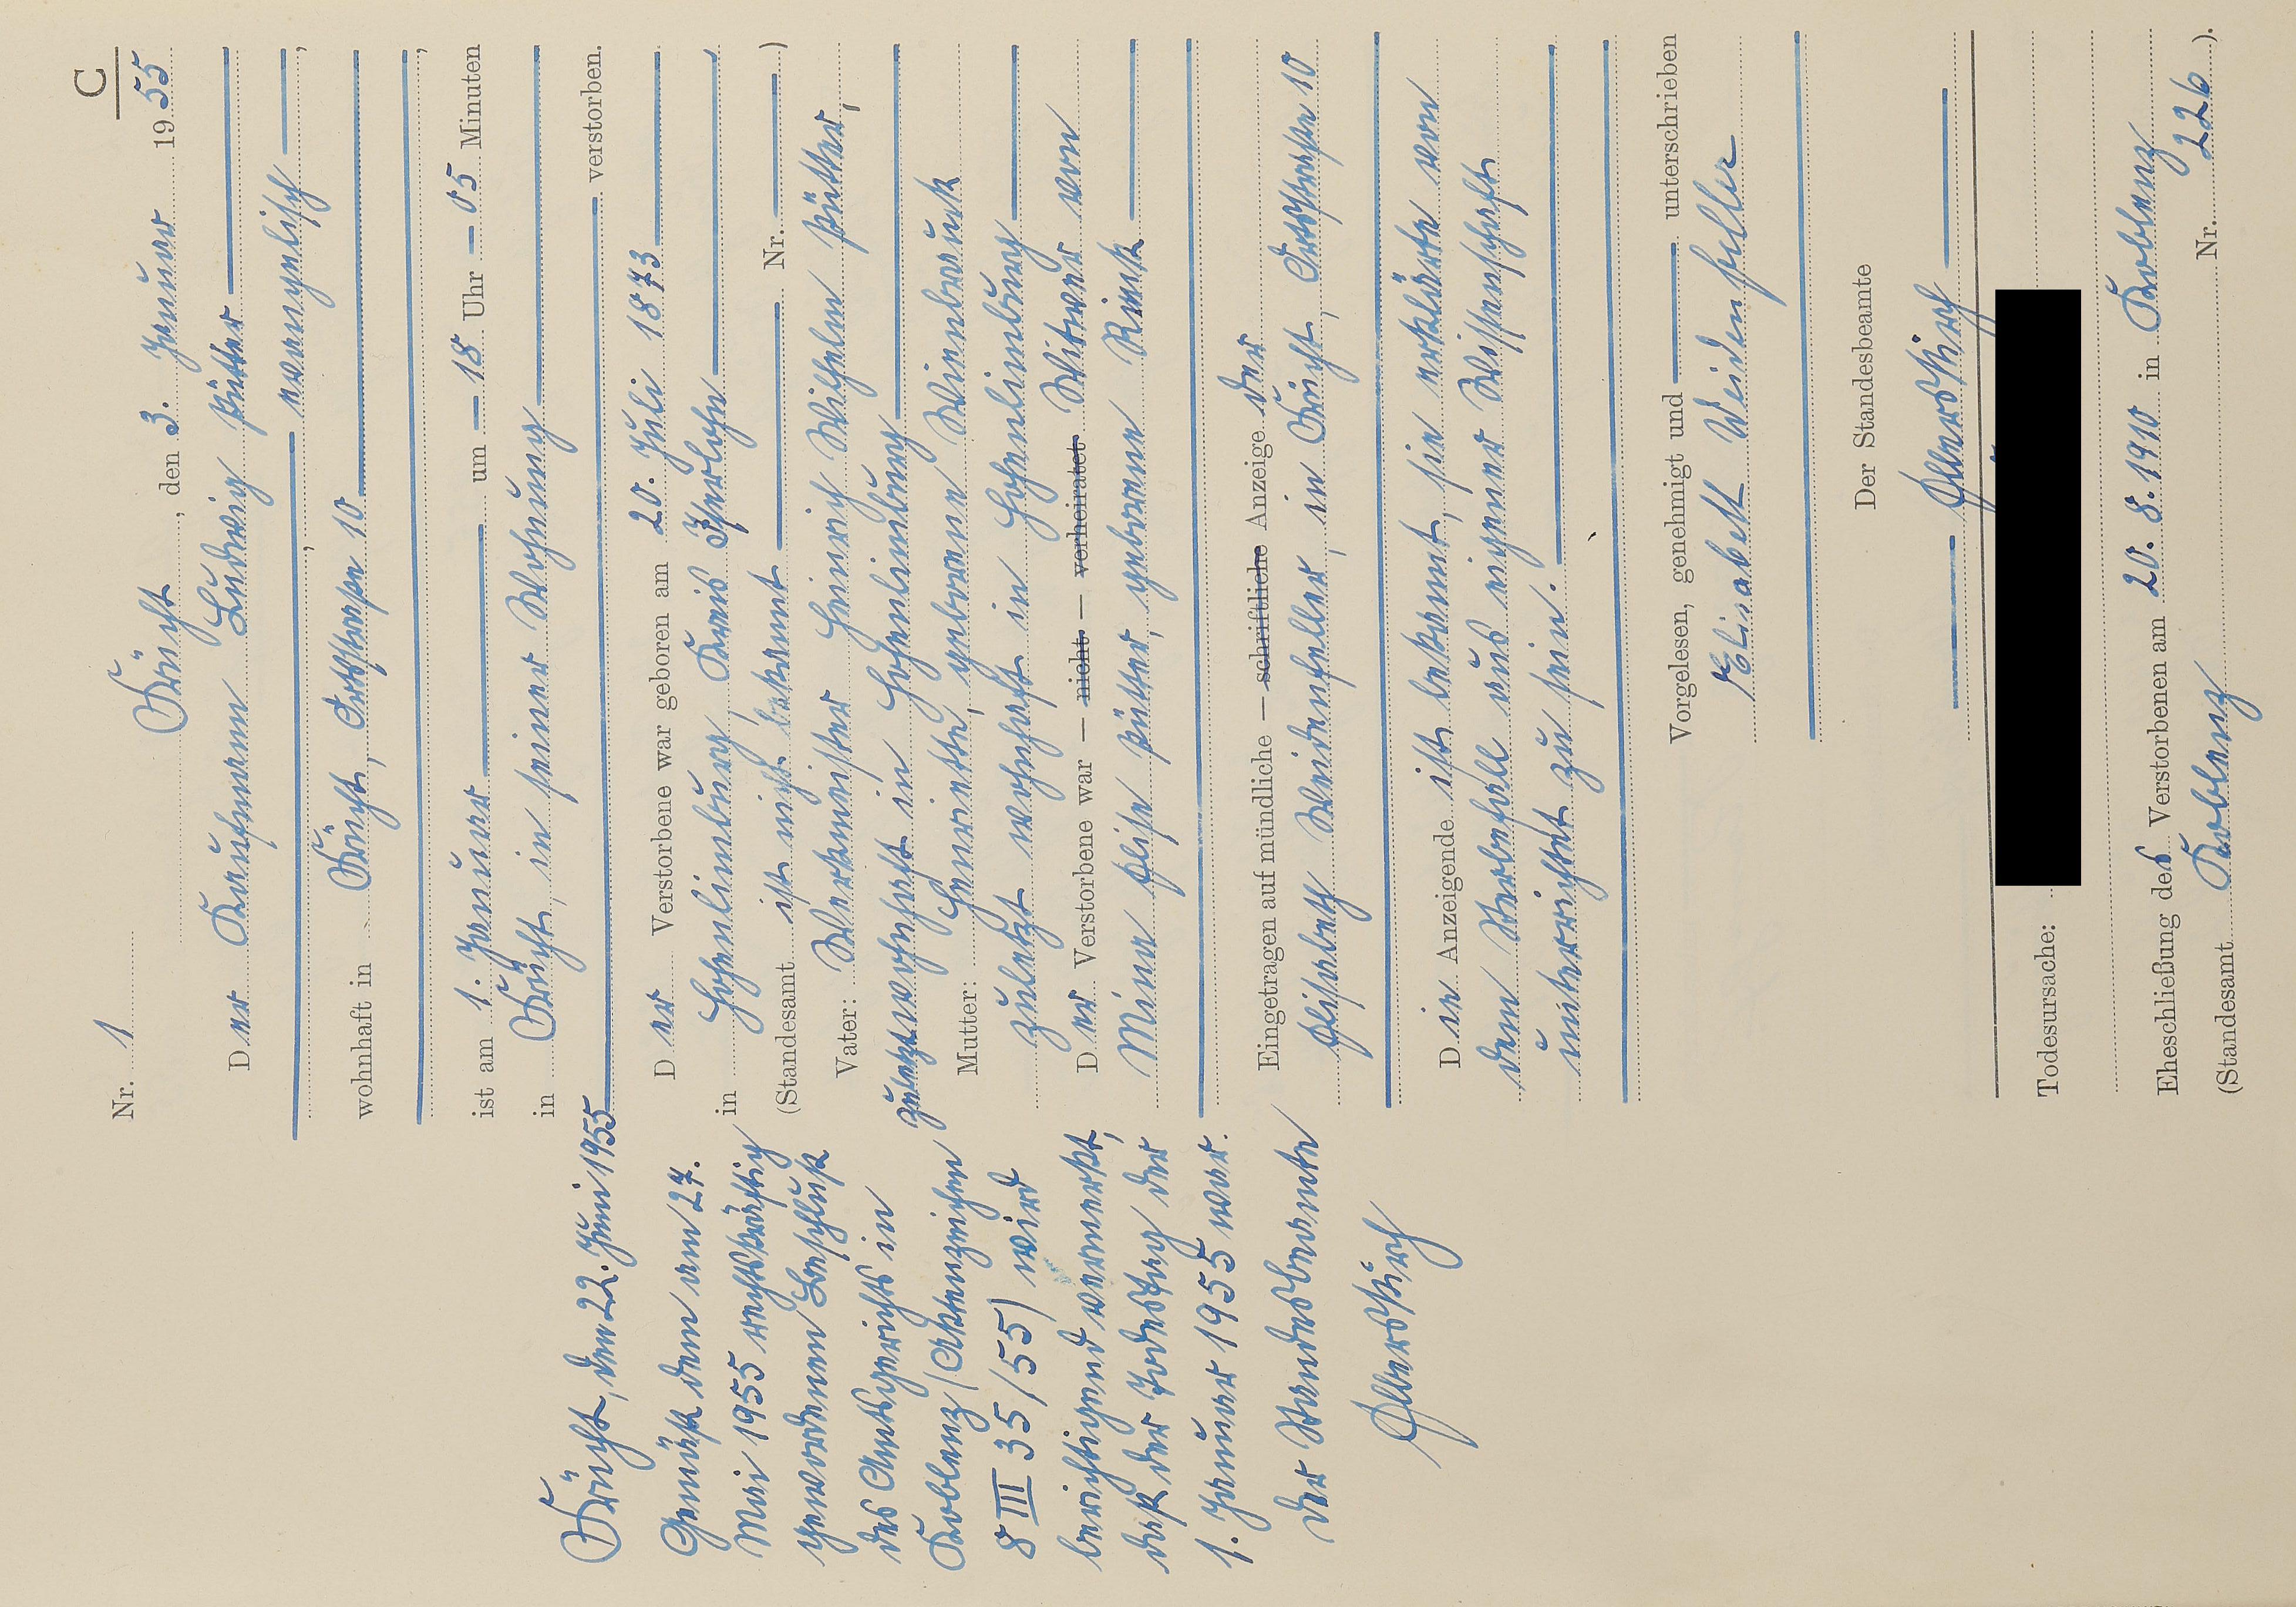 C
Nr. 1
Frücht, den 3. Januar 1955
Der Kaufmann Ludwig Pütter
evangelisch,
wohnhaft in Frücht, Ortsstraße 10
ist am 1. Januar um 18 Uhr 05 Minuten
in Frücht, in seiner Wohnung
verstorben.
Der Verstorbene war geboren am 20. Juli 1873
in Hohenlimburg, Kreis Iserlohn
(Standesamt ist nicht bekannt Nr. )
Vater: Werkmeister Heinrich Wilhelm Pütter,
zuletzt wohnhaft in Hohenlimburg
Mutter: Henriette, geborene
zuletzt wohnhaft in Hohenlimburg
Der Verstorbene war — nicht — verheiratet Witwer von
Mina Elise Pütter, geborene Rink
Eingetragen auf mündliche — schriftliche Anzeige der
Elisabeth Weidenfeller, in Frücht, Ortsstraße 10
Die Anzeigende ist bekannt, sie erklärte von
dem Sterbefall aus eigener Wissenschaft
unterrichtet zu sein.
Vorgelesen, genehmigt und unterschrieben
Elisabeth Weidenfeller
Der Standesbeamte
Todesursache:
Eheschließung des Verstorbenen am 20. 8. 1910 in Koblenz
(Standesamt Koblenz Nr. 226 ).
Frücht, den 22. Juni 1955
Gemäß dem am 27.
Mai 1955 rechtskräftig
gewordenen Beschluß
des Amtsgerichts in
Koblenz (Aktenzeichen
8 III 35/55) wird
berichtigend vermerkt,
daß der Todestag der
1. Januar 1955 war.
Der Standesbeamte